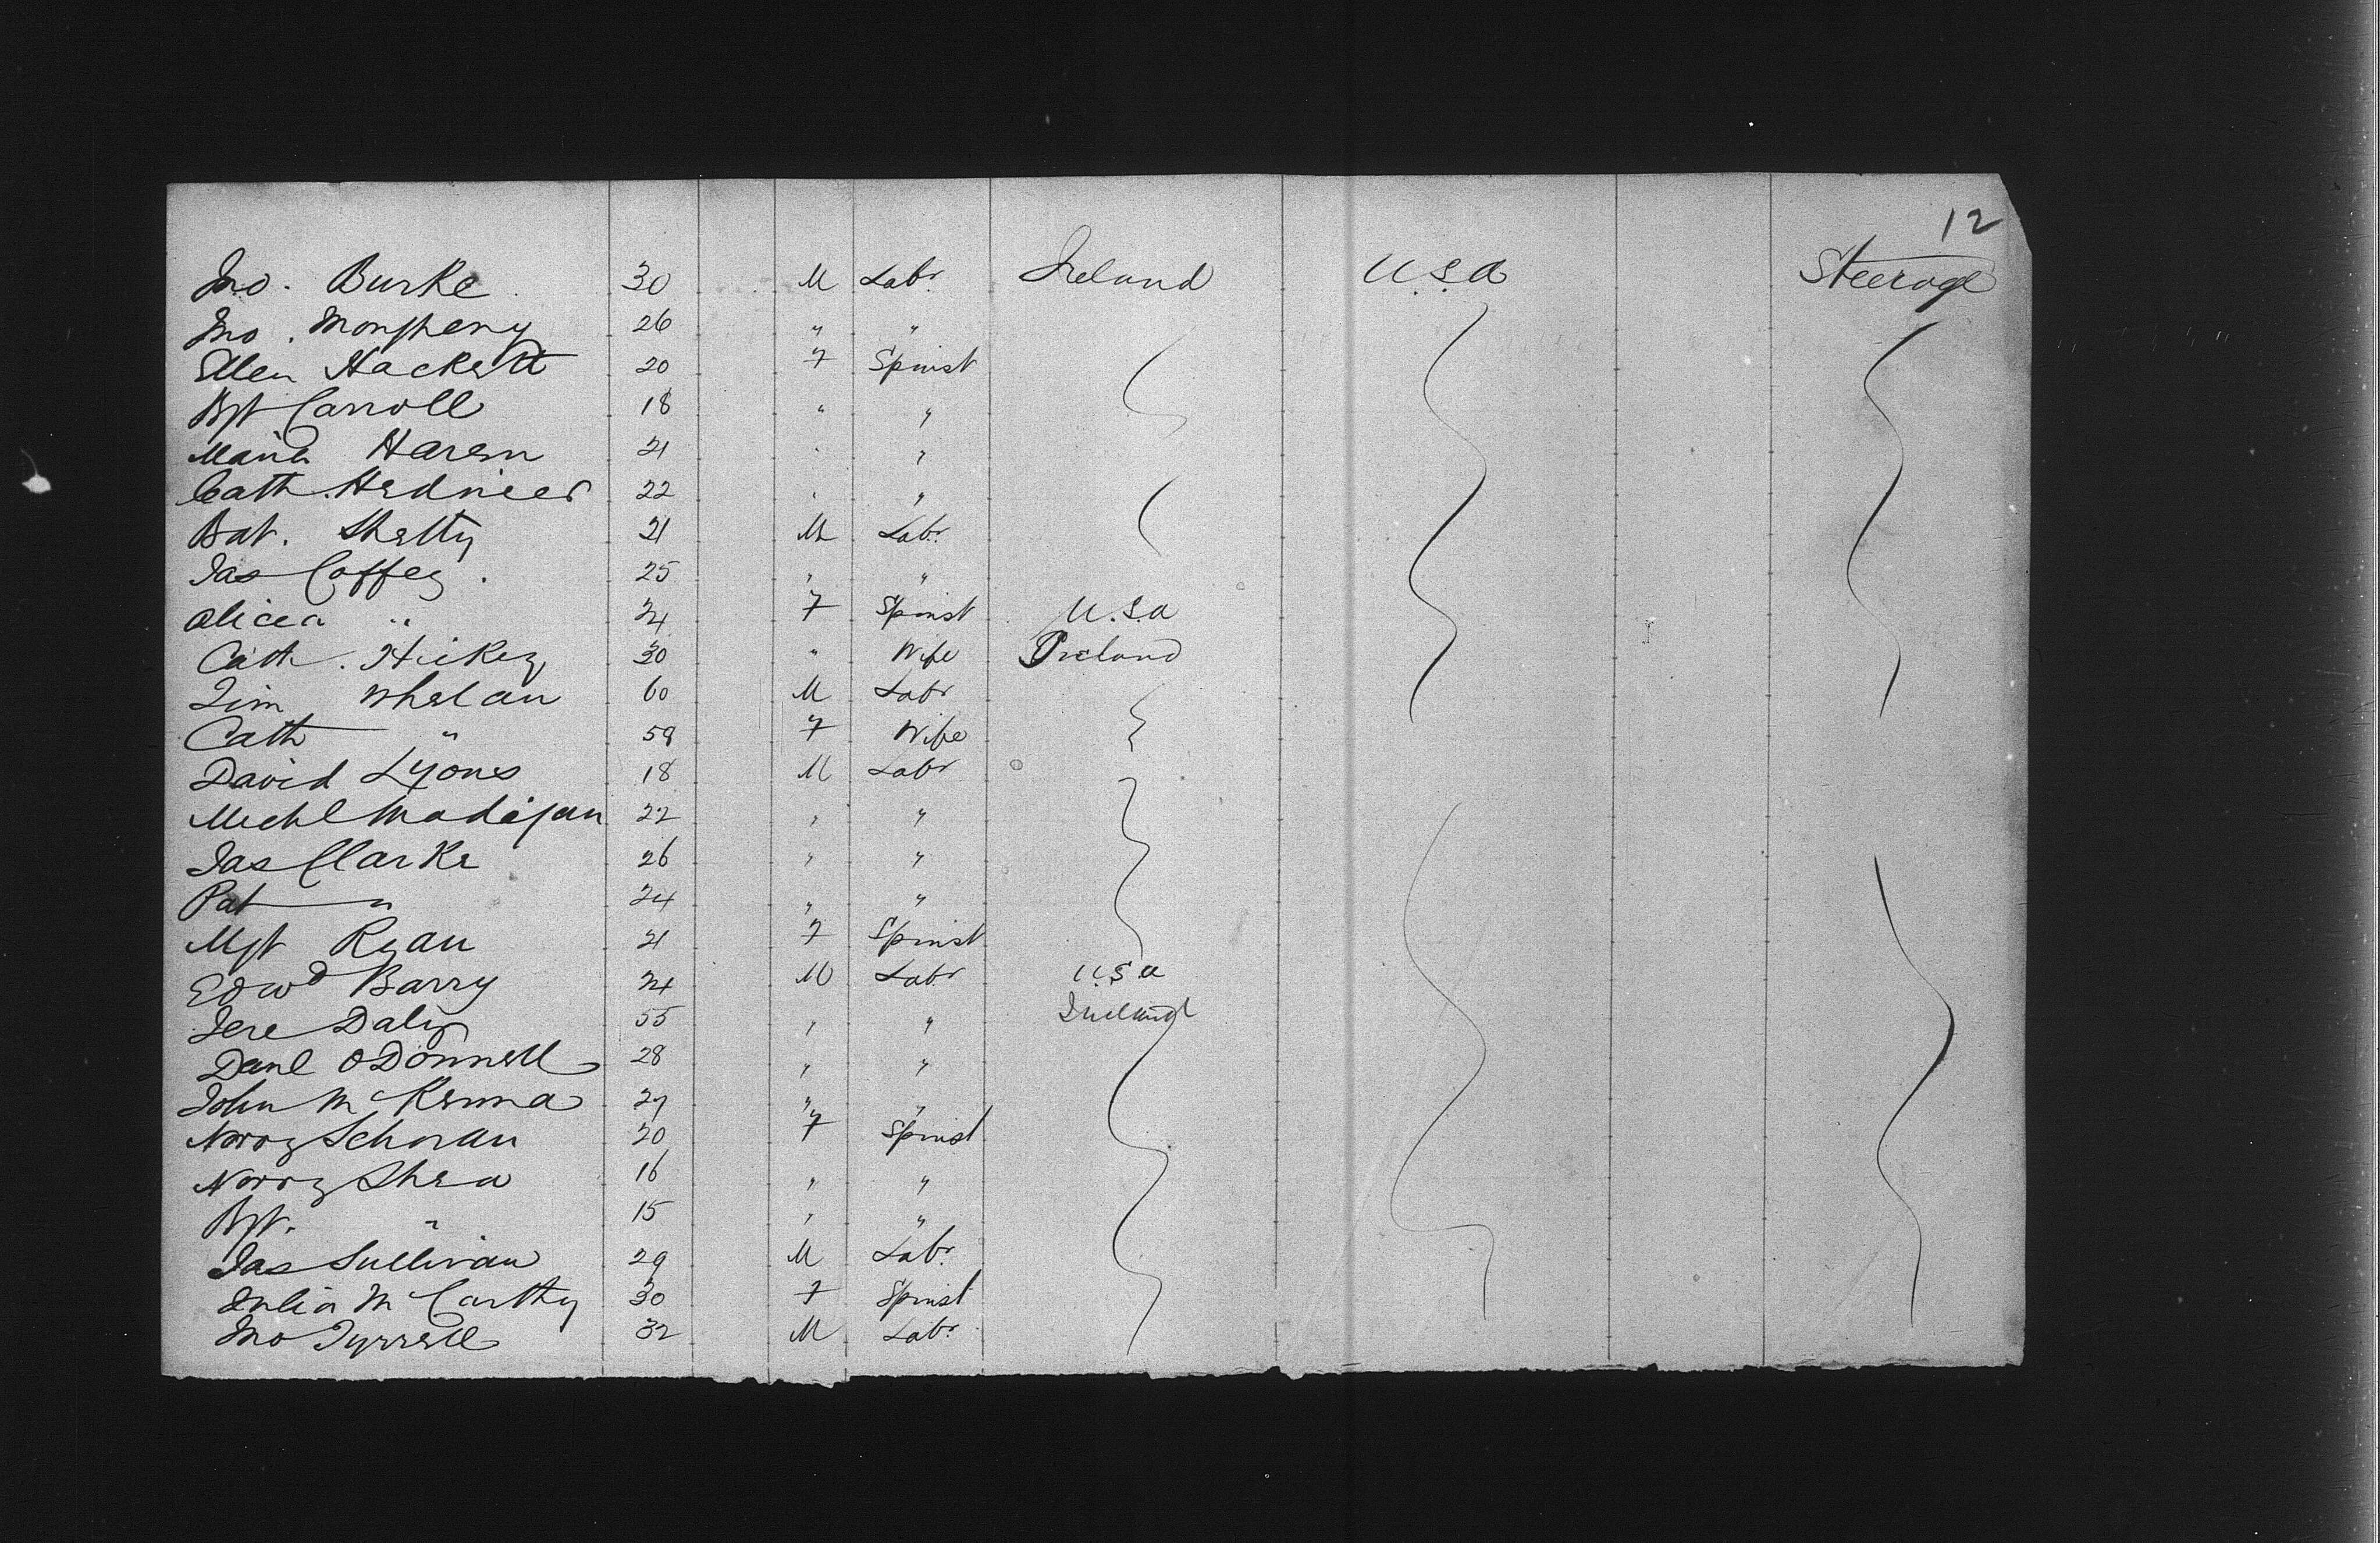 12
Jno. Burke 30 M Labr Ireland U.S.A Steerage
Jno. 26 " "
Ellen Hackett 20 F Spinst
Bgt Carroll 18 " "
Maria Haren 21 " "
Cath. 22 " "
Bat. Shelty 21 M Labr
Jas Coffey 25 " "
Alicia " 24 F Spinst U.S.A
Cath. Hickey 30 " Wife Ireland
Tim Whelan 60 M Labr
Cath " 59 F Wife
David Lyons 18 M Labr
Michl Madigan 22 " "
Jas Clarke 26 " "
Pat " 24 " "
Mgt Ryan 21 F Spinst
Edwd Barry 24 M Labr U.S.A
Jere Daly 55 " " Ireland
Danl O Donnell 28 " "
John Mc Kenna 27 " "
Norry 20 F Spinst
Norry Shea 16 " "
Bgt. " 15 " "
Jas Sullivan 29 M Labr
Julia Mc Carthy 30 F Spinst
Jno Tyrrell 32 M Labr